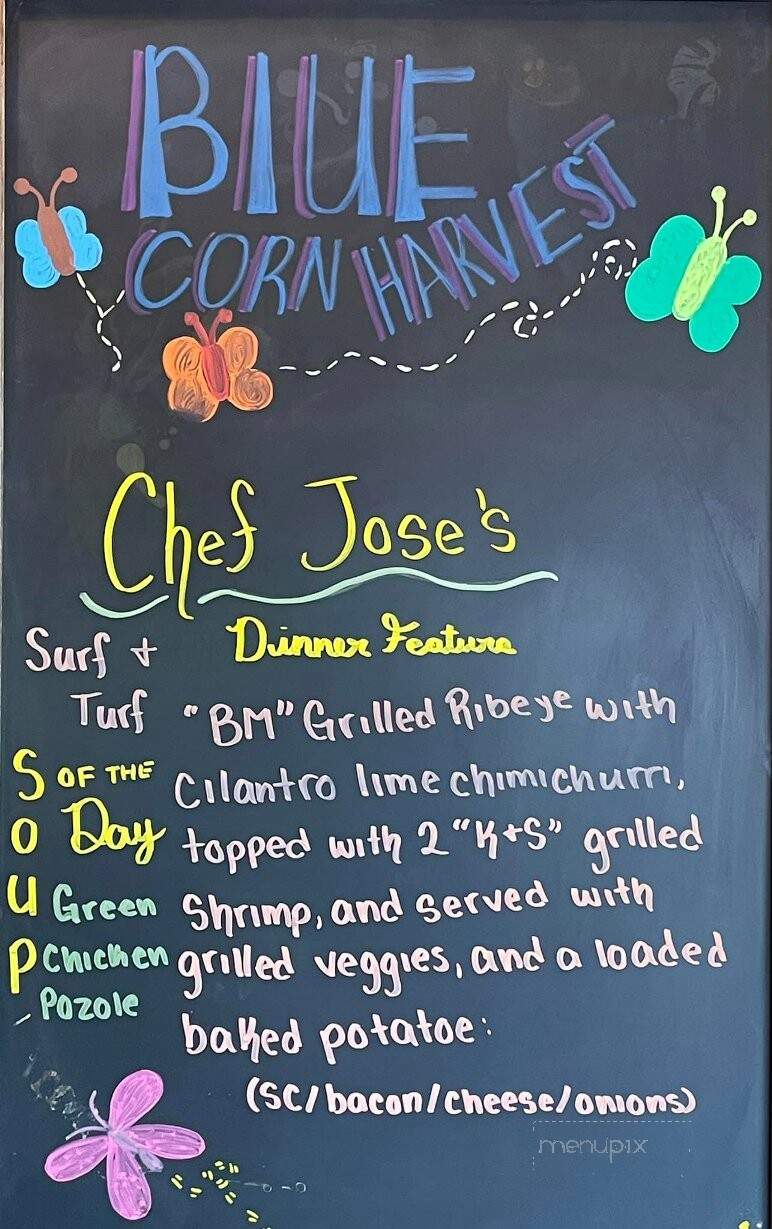 BLUE
CORN HARVEST
Chef Jose's
Dinner Feature
Surf +
Turf
"BM" Grilled Ribeye with
Cilantro lime chimichurri,
topped with 2 "K+S" grilled
Shrimp, and served with
grilled veggies, and a loaded
baked potatoe:
(SC/bacon/cheese/onions)
SOUP OF THE
Day
Green
Chicken
Pozole
menupix